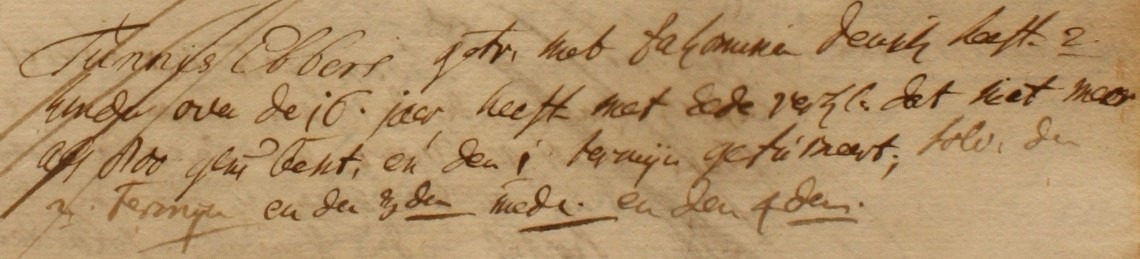 Tunnis Ebbers getr. met Jakomina heeft 2
kinder over de 16. jaer heeft met eede verkl. dat niet meer
als 800 gl. bent, en den 1 termijn gefurneert, solv. den
2. Termijn en den 3 den mede. en den 4 den.